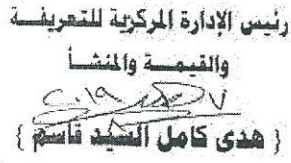 رئيس الإدارة المركزية للتعريفة
والقيمة والمنشأ
{ هدى كامل السيد قاسم }